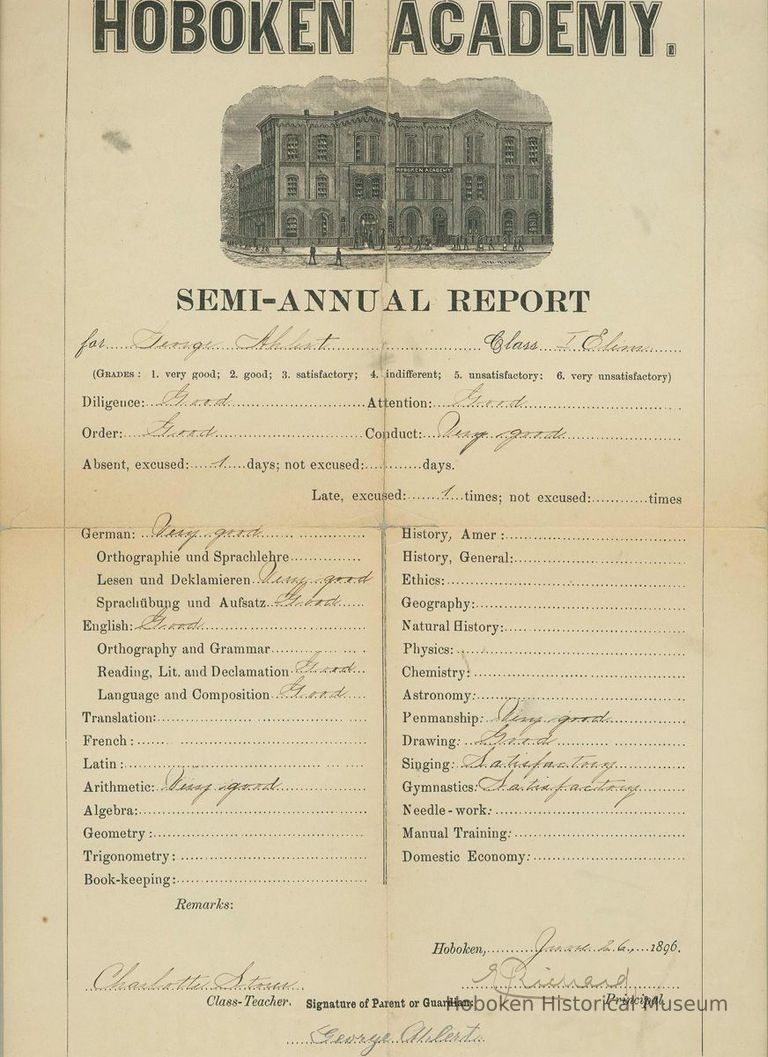 HOBOKEN ACADEMY.
HOBOKEN ACADEMY
SEMI-ANNUAL REPORT
for George Ahlert Class I Elem.
(GRADES: 1. very good; 2. good; 3. satisfactory; 4. indifferent; 5. unsatisfactory; 6. very unsatisfactory)
Diligence: Good Attention: Good
Order: Good Conduct: Very good
Absent, excused: 1 days; not excused: days.
Late, excused: 1 times; not excused: times
German: Very good
Orthographie und Sprachlehre
Lesen und Deklamieren Very good
Sprachübung und Aufsatz Good
English: Good
Orthography and Grammar
Reading, Lit. and Declamation Good
Language and Composition Good
Translation:
French:
Latin:
Arithmetic: Very good
Algebra:
Geometry:
Trigonometry:
Book-keeping:
History, Amer:
History, General:
Ethics:
Geography:
Natural History:
Physics:
Chemistry:
Astronomy:
Penmanship: Very good
Drawing: Good
Singing: Satisfactory
Gymnastics: Satisfactory
Needle-work:
Manual Training:
Domestic Economy:
Remarks:
Hoboken, June 26, 1896.
Charlotte
Class-Teacher. Signature of Parent or Guardian: Principal.
Hoboken Historical Museum
George Ahlert